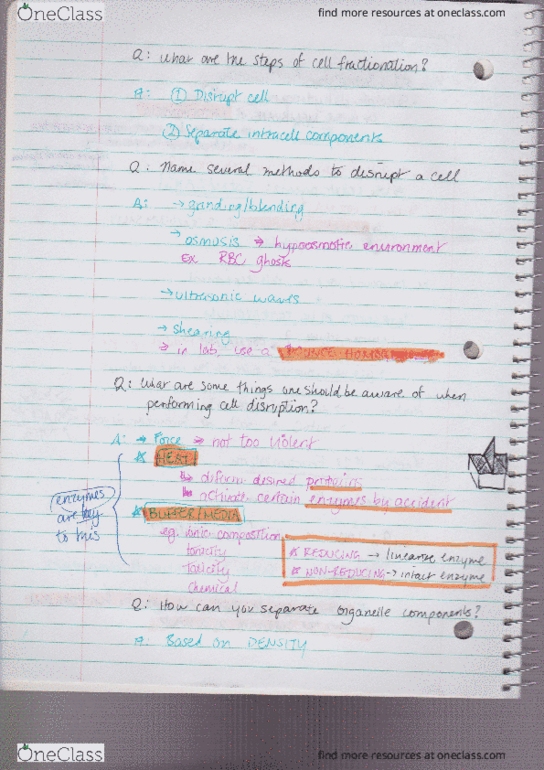 OneClass
find more resources at oneclass.com
Q: What are the steps of cell fractionation?
A: ① Disrupt cell
② Separate intracell components
Q: Name several methods to disrupt a cell
A: → grinding/blending
→ osmosis → hypoosmotic environment
Ex RBC ghosts
→ ultrasonic waves
→ Shearing
→ in lab, use a DOUNCE
Q: What are some things one should be aware of when
performing cell disruption?
A: → Force → not too violent
HEAT
↳ diform desired proteins
↳ activate certain enzymes by accident
enzymes
are key
to this
BUFFER/MEDIA
eg. ionic composition
tonicity
toxicity
chemical
REDUCING → linearize enzyme
NON-REDUCING → intact enzyme
Q: How can you separate organelle components?
A: Based on DENSITY
OneClass
find more resources at oneclass.com